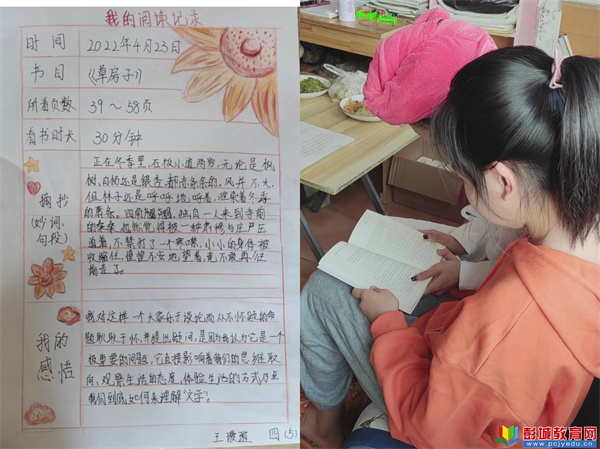 我的阅读记录
时间
2022年4月23日
书目
《草房子》
所看页数
39～58页
看书时长
30分钟
摘抄
(妙词、
句段)
正在冬季里,石板小道两旁,无论是枫
树、白杨还是银杏,都赤条条的。风并不大,
但林子还是呼呼地,呼着,渲染着冬季
的萧条。
独自一人来到寺前
的秦秦,忽然觉得被一种肃穆与庄严压
迫着,不禁打了一个寒噤,小小的身体被
收缩住,惶惶不安地望着,竟不敢再往
前走了。
我的
感悟
我对这样一个大家乐于谈论而从不怀疑的命
题耿耿于怀,并提出疑问,是因为我认为它是一个
极重要的问题,它直接影响着我们的思维取
向、观察生活的态度、体验生活的方式乃至
我们到底如何来理解“文学”。
四(5)
彭城教育网
www.pcjyedu.cn